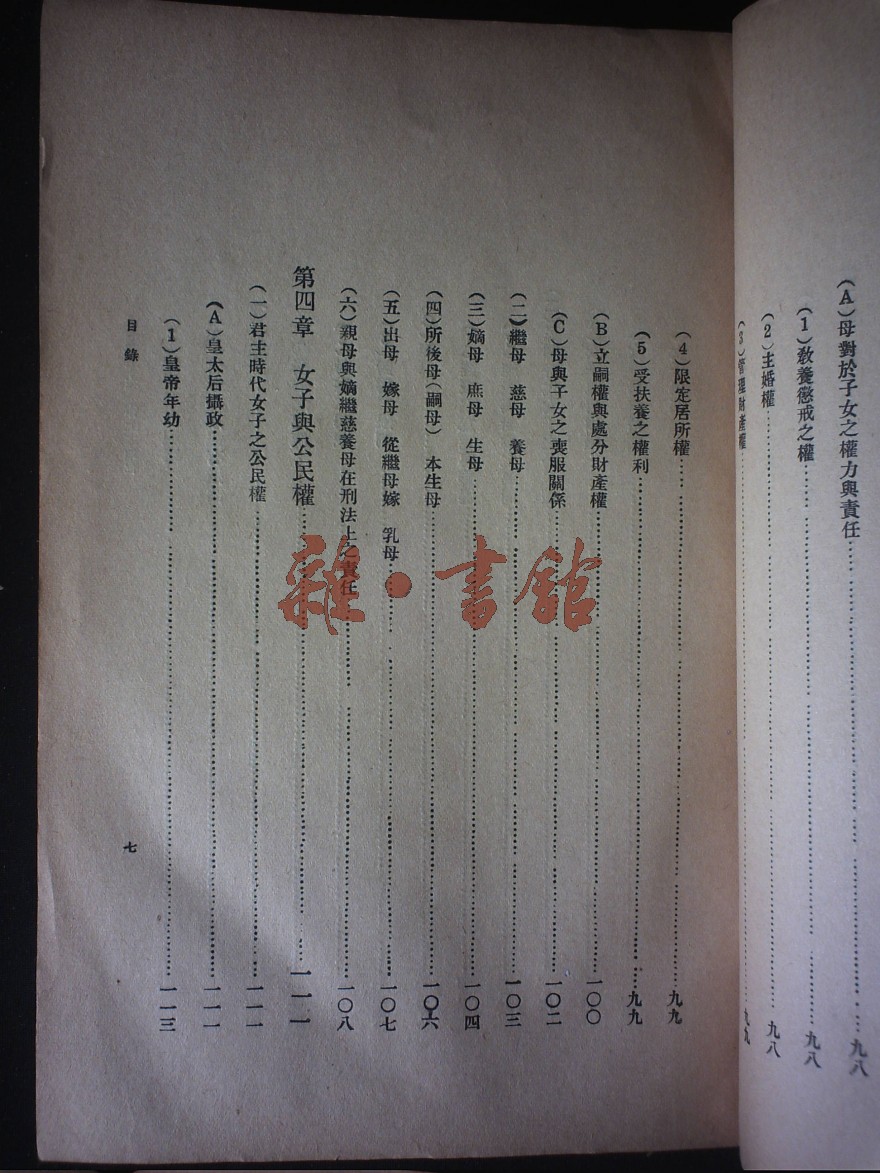 (A)母對於子女之權力與責任……九八
(1)敎養懲戒之權……九八
(2)主婚權……九八
(3)管理財產權……九九
(4)限定居所權……九九
(5)受扶養之權利……九九
(B)立嗣權與處分財產權……一〇〇
(C)母與子女之喪服關係……一〇二
(二)繼母 慈母 養母……一〇三
(三)嫡母 庶母 生母……一〇四
(四)所後母(嗣母) 本生母……一〇六
(五)出母 嫁母 從繼母嫁 乳母……一〇七
(六)親母與嫡繼慈養母在刑法上之責任……一〇八
第四章 女子與公民權……一一一
(一)君主時代女子之公民權……一一一
(A)皇太后攝政……一一一
(1)皇帝年幼……一一三
目錄
七
雜·書館